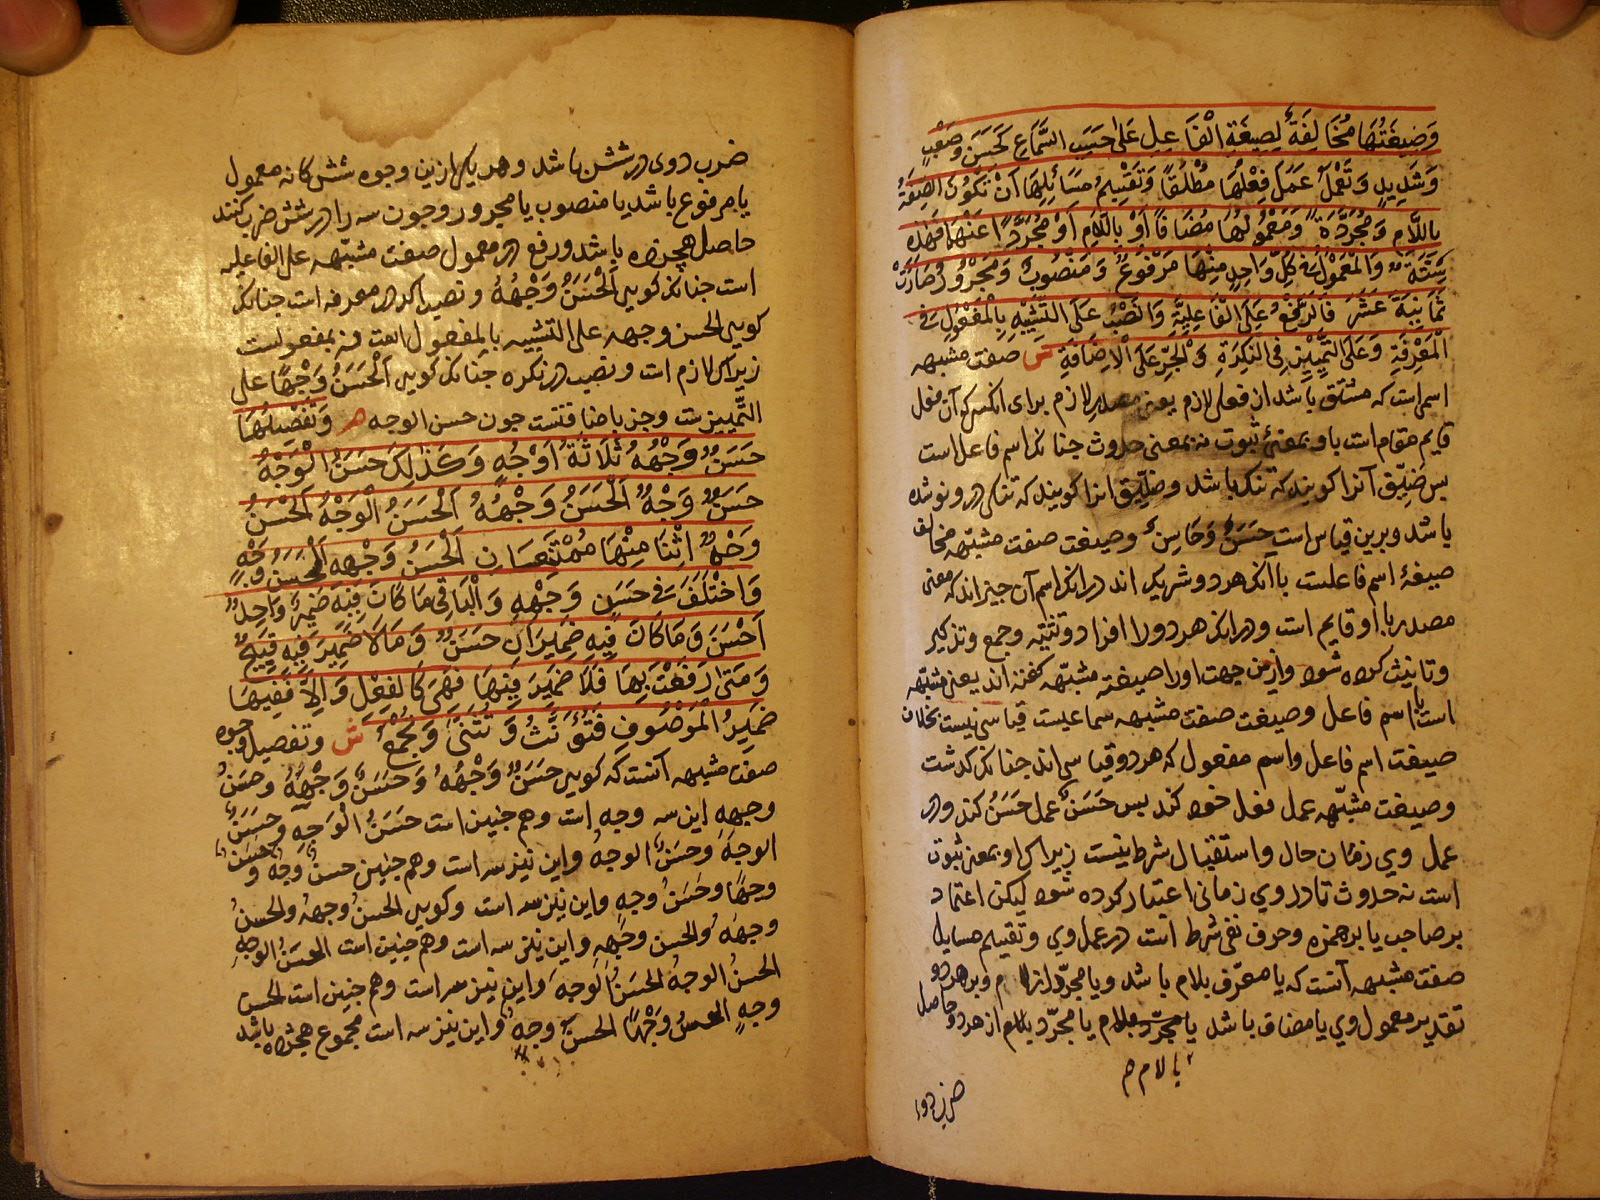 وَصِيغَتُهَا مُخَالِفَةٌ لِصِيغَةِ الْفَاعِلِ عَلَى حَسَبِ السَّمَاعِ كَحَسَنٍ وَصَعْبٍ
وَشَدِيدٍ وَتَعْمَلُ عَمَلَ فِعْلِهَا مُطْلَقًا وَتَقْسِيمُ مَسَائِلِهَا اَنْ تَكُونَ الصِفَةُ
بِاللَّامِ وَمُجَرَّدَةً وَمَعْمُولُهَا مُضَافًا اَوْ بِاللَّامِ اَوْ مُجَرَّدًا عَنْهَا فَهٰذِهِ
سِتَّةٌ وَالْمَعْمُولُ فِي كُلِّ وَاحِدٍ مِنْهَا مَرْفُوعٌ وَمَنْصُوبٌ وَمَجْرُورٌ صَارَتْ
ثَمَانِيَةَ عَشَرَ فَالرَّفْعُ عَلَى الْفَاعِلِيَّةِ وَالنَّصْبُ عَلَى التَّشْبِيهِ بِالْمَفْعُولِ فِي
الْمَعْرِفَةِ وَعَلَى التَّمْيِيزِ فِي النَّكِرَةِ وَالْجَرُّ عَلَى الْاِضَافَةِ ش صفت مشبهه
اسمی است که مشتق باشد از فعل لازم یعنی مصدر لازم برای انکس که آن فعل
قایم مقام است باو بمعنی ثبوت نه بمعنی حدوث جنانک اسم فاعل است
بس ضَیِّق آنرا کویند که تنک باشد و ضایق انرا کویند که تنکی در و نو شده
باشد و برین قیاس است حَسَنٌ وَحَاسِنٌ وصیغت صفت مشبّهه مخالف
صیغهٔ اسم فاعلست با آنکه هر دو شریک اند در انک اسم آن جیز اند که معنی
مصدر باو قایم است و در انک هر دو را افراد و تثنیه و جمع و تذکیر
و تانیث کرده شود و ازین جهت او را صیغهٔ مشبّهه کفته اند یعنی مشبّهه
است با اسم فاعل وصیغت صفت مشبهه سماعیست قیاسی نیست بخلاف
صیغت اسم فاعل و اسم مفعول که هر دو قیاسی اند جنانک کدشت
وصیغت مشبّهه عمل فعل خود کند بس حَسَنٌ عمل حَسَنُ کند و در
عمل وی زمان حال و استقبال شرط نیست زیراک او بمعنی ثبوت
است نه حدوث تا در وی زمانی اعتبار کرده شود لیکن اعتماد
بر صاحب یا بر همزه و حرف نفی شرط است در عمل وی و تقسیم مسایل
صفت مشبهه آنست که یا معرّف بلام باشد و یا مجرّد از لام و بر هر دو
تقدیر معمول وی یا مضاف باشد یا مجرّد بلام یا مجرّد بلام از هر دو حاصل
بالام م
ضرب دوی
ضرب دوی در شش باشد و هر یکی ازین وجوه شش کانه معمول
یا مرفوع باشد یا منصوب یا مجرور و جون سه را در شش ضرب کنند
حاصل هجده باشد و رفع در معمول صفت مشبّهه علی الفاعلیه
است جنانک کویی اَلْحَسَنُ وَجْهُهُ و نصب اکر در معرفه است جنانک
کویی الحسن وجهه علی التشبیه بالمفعول است نه بمفعولیت
زیراک لازم است و نصب در نکره جنانک کویی اَلْحَسَنُ وَجْهًا علی
التَّمییز ست و جر باضافتست جون حسن الوجه م وَتَفْصِيلُهَا
حَسَنٌ وَجْهُهُ ثَلَاثَةُ اَوْجُهٍ وَكَذٰلِكَ حَسَنُ الْوَجْهُ
حَسَنٌ وَجْهٌ اَلْحَسَنُ وَجْهُهُ اَلْحَسَنُ الْوَجْهُ اَلْحَسَنُ
وَجْهٌ اِثْنَانِ مِنْهَا مُمْتَنِعَانِ اَلْحَسَنُ وَجْهِهِ اَلْحَسَنُ وَجْهٍ
وَاخْتُلِفَ فِي حَسَنِ وَجْهِهِ وَالْبَاقِي مَا كَانَ فِيهِ ضَمِيرٌ وَاحِدٌ
اَحْسَنُ وَمَا كَانَ فِيهِ ضَمِيرَانِ حَسَنٌ وَمَا لَا ضَمِيرَ فِيهِ قَبِيحٌ
وَمَتَى رَفَعْتَ بِهَا فَلَا ضَمِيرَ فِيهَا فَهِيَ كَالْفِعْلِ وَاِلَّا فَفِيهَا
ضَمِيرُ الْمَوْصُوفِ فَتُؤَنَّثُ وَتُثَنَّى وَتُجْمَعُ ش و تفصیل وجوه
صفت مشبهه آنست که کویی حَسَنٌ وَجْهُهُ وَحَسَنٌ وَجْهَهُ وحَسَنُ
وجهِهِ این سه وجه است و هم جنین است حَسَنُ الْوَجهِ وحَسَنٌ
الوجهَ وحَسَنٌ الوجهُ و این نیز سه است و هم جنین حسنٌ وجهٌ وحسنٌ
وجهًا وحَسَنُ وجهٍ و این نیز سه است و کویی الحسنُ وجهُهُ والحسنُ
وجهَهُ والحسن وجهِهِ و این نیز سه است و هم جنین است الحسنُ الوجهِ
الحسنُ الوجهُ الحسَنُ الوجهَ و این نیز سه است و هم جنین است الحسن
وجهٍ الحسنُ وجْهًا الحسنُ وجهٌ و این نیز سه است مجموع هجده باشد